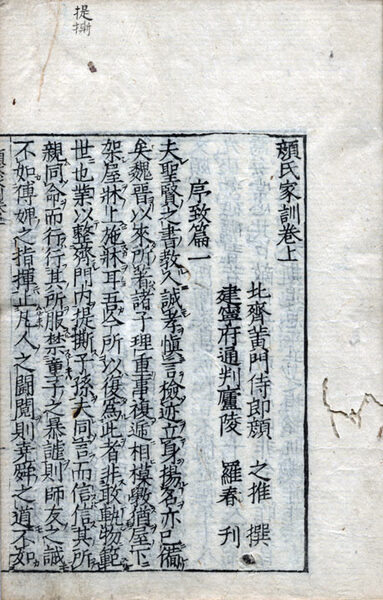 提撕
顏氏家訓卷上
北齊黃門侍郎顏 之推 撰
建寧府通判廬陵 羅春 刊
序致篇一
夫聖賢之書教人誠孝慎言檢迹立身揚名亦已備
矣魏晉以來所著諸子理重事複遞相模斆猶屋下
架屋牀上施牀耳吾今所以復為此者非敢軌物範
世也業以整齊門内提撕子孫夫同言而信信其所
親同命而行行其所服禁童子之暴謔則師友之誡
不如傅婢之指揮止凡人之鬭鬩則堯舜之道不如